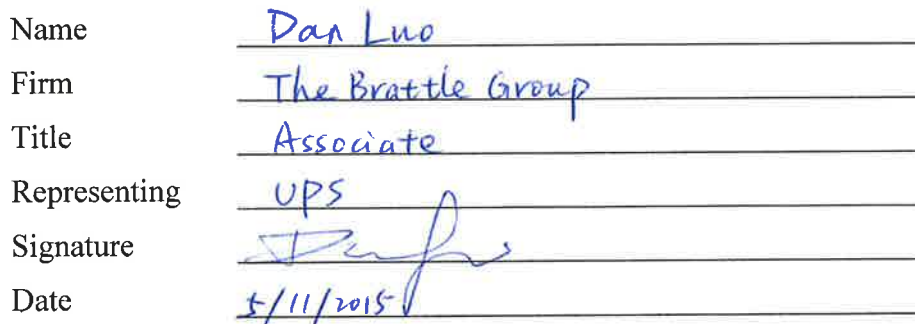 Name Dan Luo
Firm The Brattle Group
Title Associate
Representing UPS
Signature Dan Luo
Date 5/11/2015